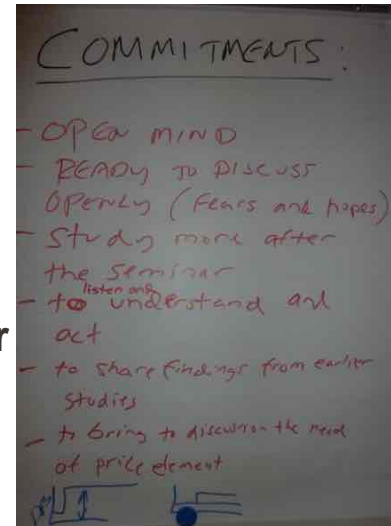 COMMITMENTS:
- OPEN MIND
- READY TO DISCUSS
OPENLY (fears and hopes)
- Study more after
the seminar
listen and
- to understand and
act
r
- to share findings from earlier
studies
- to bring to discussion the need
of price element